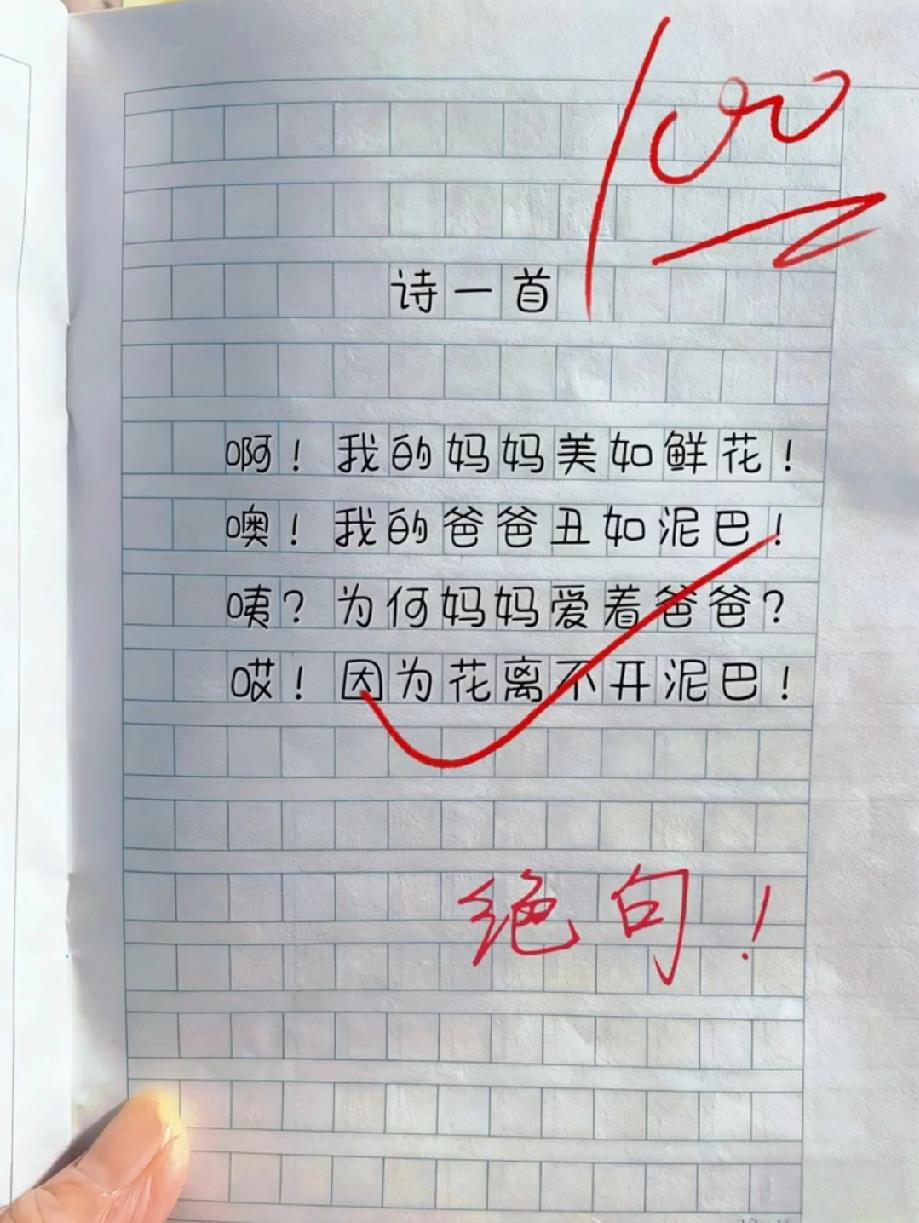 100
诗一首
啊！我的妈妈美如鲜花！
噢！我的爸爸丑如泥巴！
咦？为何妈妈爱着爸爸？
哎！因为花离不开泥巴！
绝句！